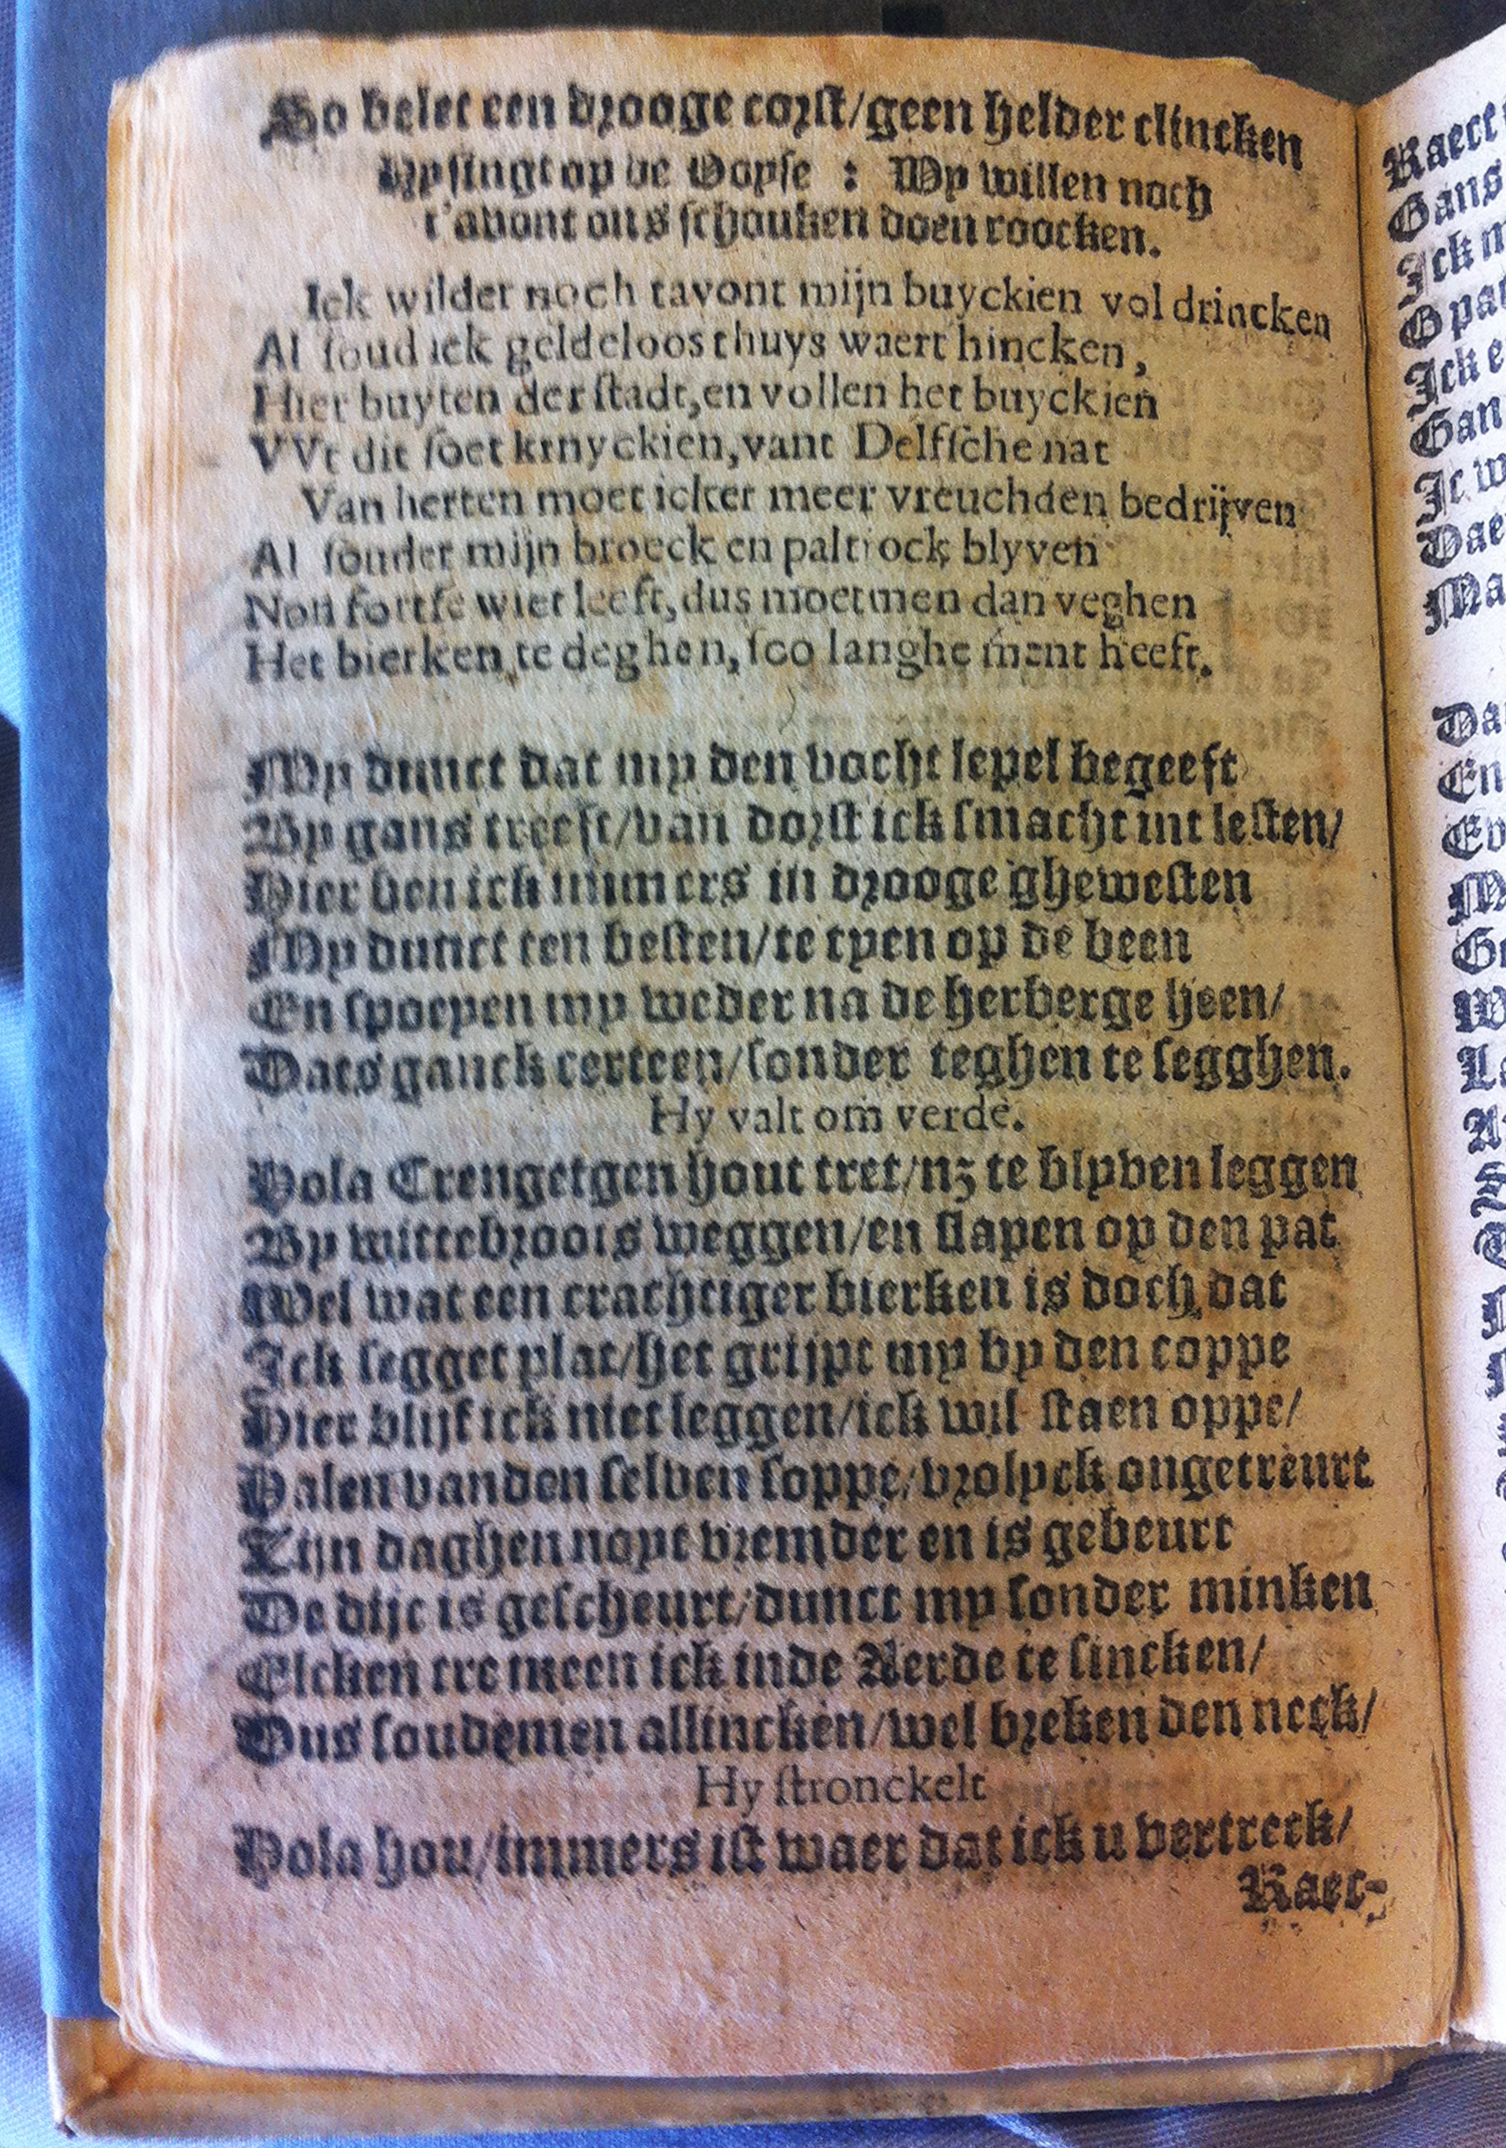 So belet een drooge corst/geen helder clincken
Hy singt op de Voyse : Wy willen noch
t'avont ons schouken doen roocken.
Ick wilder noch tavont mijn buyckien vol drincken
Al soud ick geldeloos thuys waert hincken,
Hier buyten der stadt,en vollen het buyckien
VVt dit soet krnyckien,vant Delfsche nat
Van herten moet icker meer vreuchden bedrijven
Al souder mijn broeck en paltrock blyven
Nou fortse wiet leeft,dus moetmen dan veghen
Het bierken te deghen,soo langhe ment heeft.
My dunct dat my den vocht lepel begeeft
By gans treeft/van dorst ick smacht int lesten/
Hier ben ick immers in drooge ghewesten
My dunct ten besten/te tyen op de been
En spoeyen my weder na de herberge heen/
Dats ganck certeen/sonder teghen te segghen.
Hy valt om verde.
Hola Crengetgen hout tret/nz te blyven leggen
By wittebroots weggen/en slapen op den pat
Wel wat een crachtiger bierken is doch dat
Ick segget plat/het grijpt my by den coppe
Hier blijf ick niet leggen/ick wil staen oppe/
Halen vanden selven soppe/vrolyck ongetreurt
Tijn daghen noyt vremder en is gebeurt
De dijc is gescheurt/dunct my sonder minken
Elcken tre meen ick inde Aerde te sincken/
Dus soudemen allincken/wel breken den neck/
Hy stronckelt
Hola hou/immers ist waer dat ick u vertreck/
Raec-
Raect
Gans
Ick m
G pat
Ick e
Gan
Ic w
Daer
Ma
Da
En